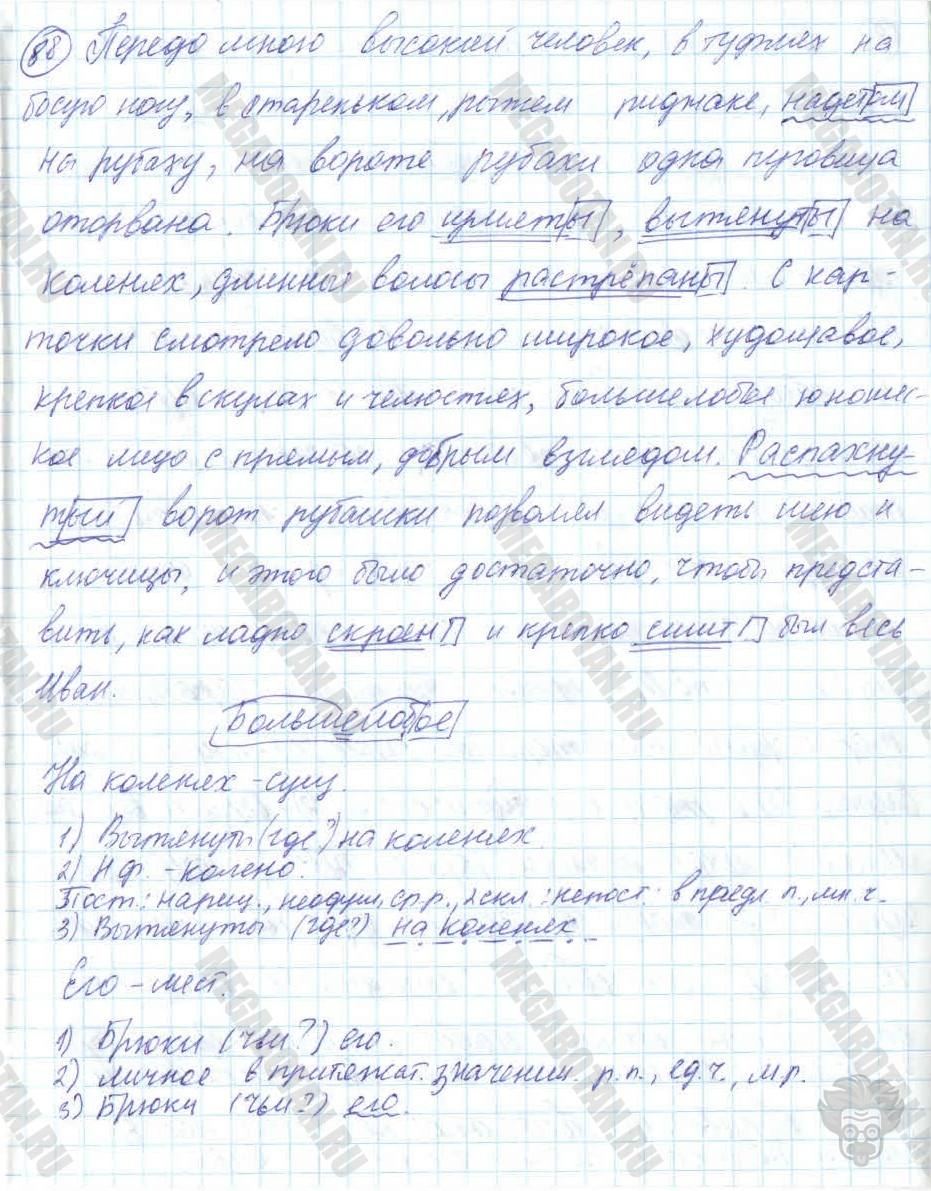 88 Передо мною высокий человек, в туфлях на
босую ногу, в стареньком, рыжем пиджаке, надетом
на рубаху, на вороте рубахи одна пуговица
оторвана. Брюки его измяты, вытянуты на
коленях, длинные волосы растрёпаны. С кар-
точки смотрело довольно широкое, худощавое,
крепкое в скулах и челюстях, большелобое юношес-
кое лицо с прямым, добрым взглядом. Распахну-
тый ворот рубашки позволял видеть шею и
ключицы, и этого было достаточно, чтобы предста-
вить, как ладно скроен и крепко сшит был весь
Иван.
Большелобое
На коленях - сущ.
1) Вытянуты (где?) на коленях.
2) Н.ф. - колено.
Пост.: нариц., неодуш., ср.р., 2 скл.; непост.: в предл. п., мн. ч.
3) Вытянуты (где?) на коленях
Его - мест.
1) Брюки (чьи?) его.
2) личное в притяжат. значении. р.п., ед.ч., м.р.
3) Брюки (чьи?) его.
MEGABOTAN.RU
MEGABOTAN.RU
MEGABOTAN.RU
MEGABOTAN.RU
MEGABOTAN.RU
MEGABOTAN.RU
MEGABOTAN.RU
MEGABOTAN.RU
MEGABOTAN.RU